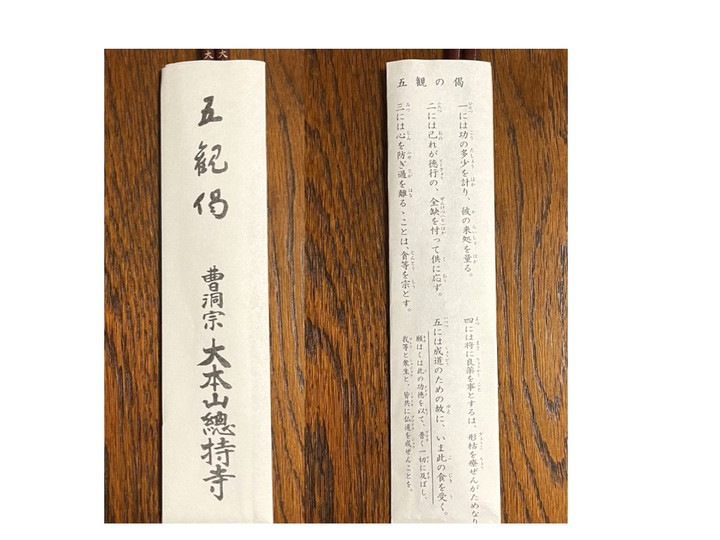 大 大
五観偈
曹洞宗 大本山總持寺
五観の偈
一には功の多少を計り、彼の来処を量る。
二には己れが徳行の、全缺を忖って供に応ず。
三には心を防ぎ過を離るゝことは、貪等を宗とす。
四には将に良薬を事とするは、形枯を療ぜんがためなり
五には成道のための故に、いま此の食を受く。
願はくは此の功徳を以て、普く一切に及ぼし、
我等と衆生と、皆共に仏道を成ぜんことを。